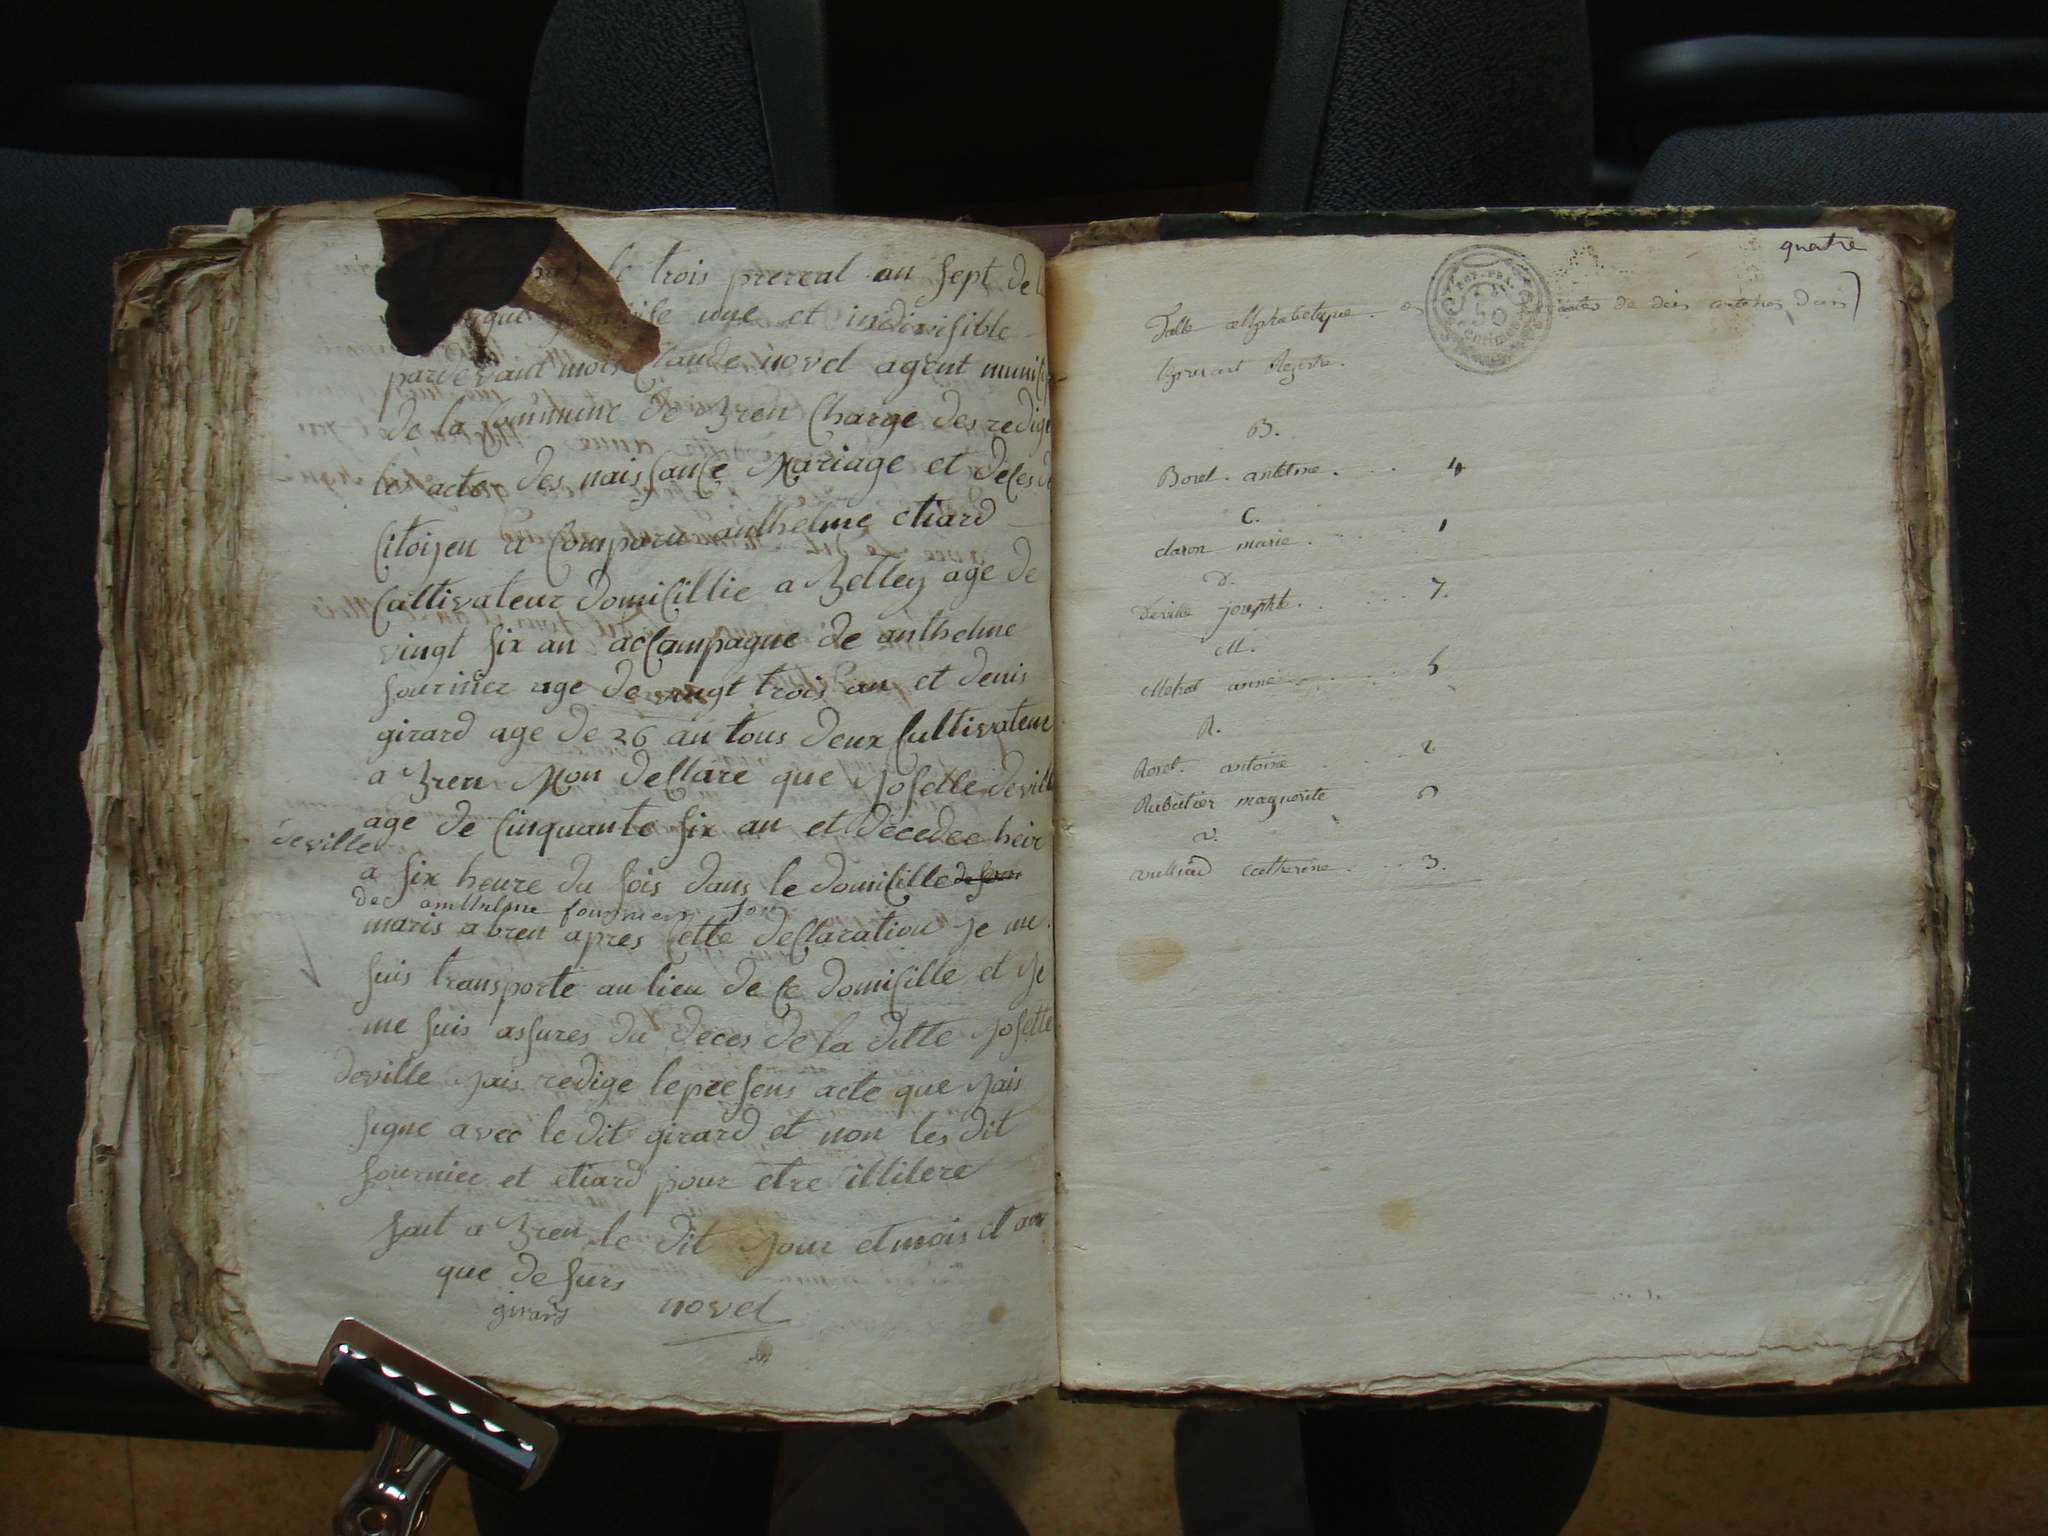 le trois prereal an sept de la
une et indivisible
pardevant mois Claude novel agent munisip
de la Commune de Bren Charge des redige
les acte des naissance Mariage et deces de
Citoyen a Comparu anthelme etiard
Cultivateur domicillie a Belley age de
vingt six an accompagne de anthelme
fournier age de vingt trois an et denis
girard age de 26 an tous deux Cultivateur
a Bren Mon declare que Josette deville
age de Cinquante six an et decedee heir
deville
a six heure du sois dans le domicille de son
de anthelme fournier son
maris a bren apres Cette declaration je me
suis transporte au lieu de ce domicille et je
me suis assures du deces de la ditte Josette
deville Jais redige le presens acte que Jais
signe avec le dit girard et non les dit
fournier et etiard pour etre illitere
fait a Bren le dit Jour et mois et an
que de surs
girard novel
quatre
Table alphabetique actes de dans
le present Registre.
B.
Boret. antoine. 4
C.
claron marie. 1
D.
Deville josephte. 7.
M.
Metral anne 5
R.
Roret. antoine 2
Rubatier marguerite 6
V.
vulliod Catherine. 3.